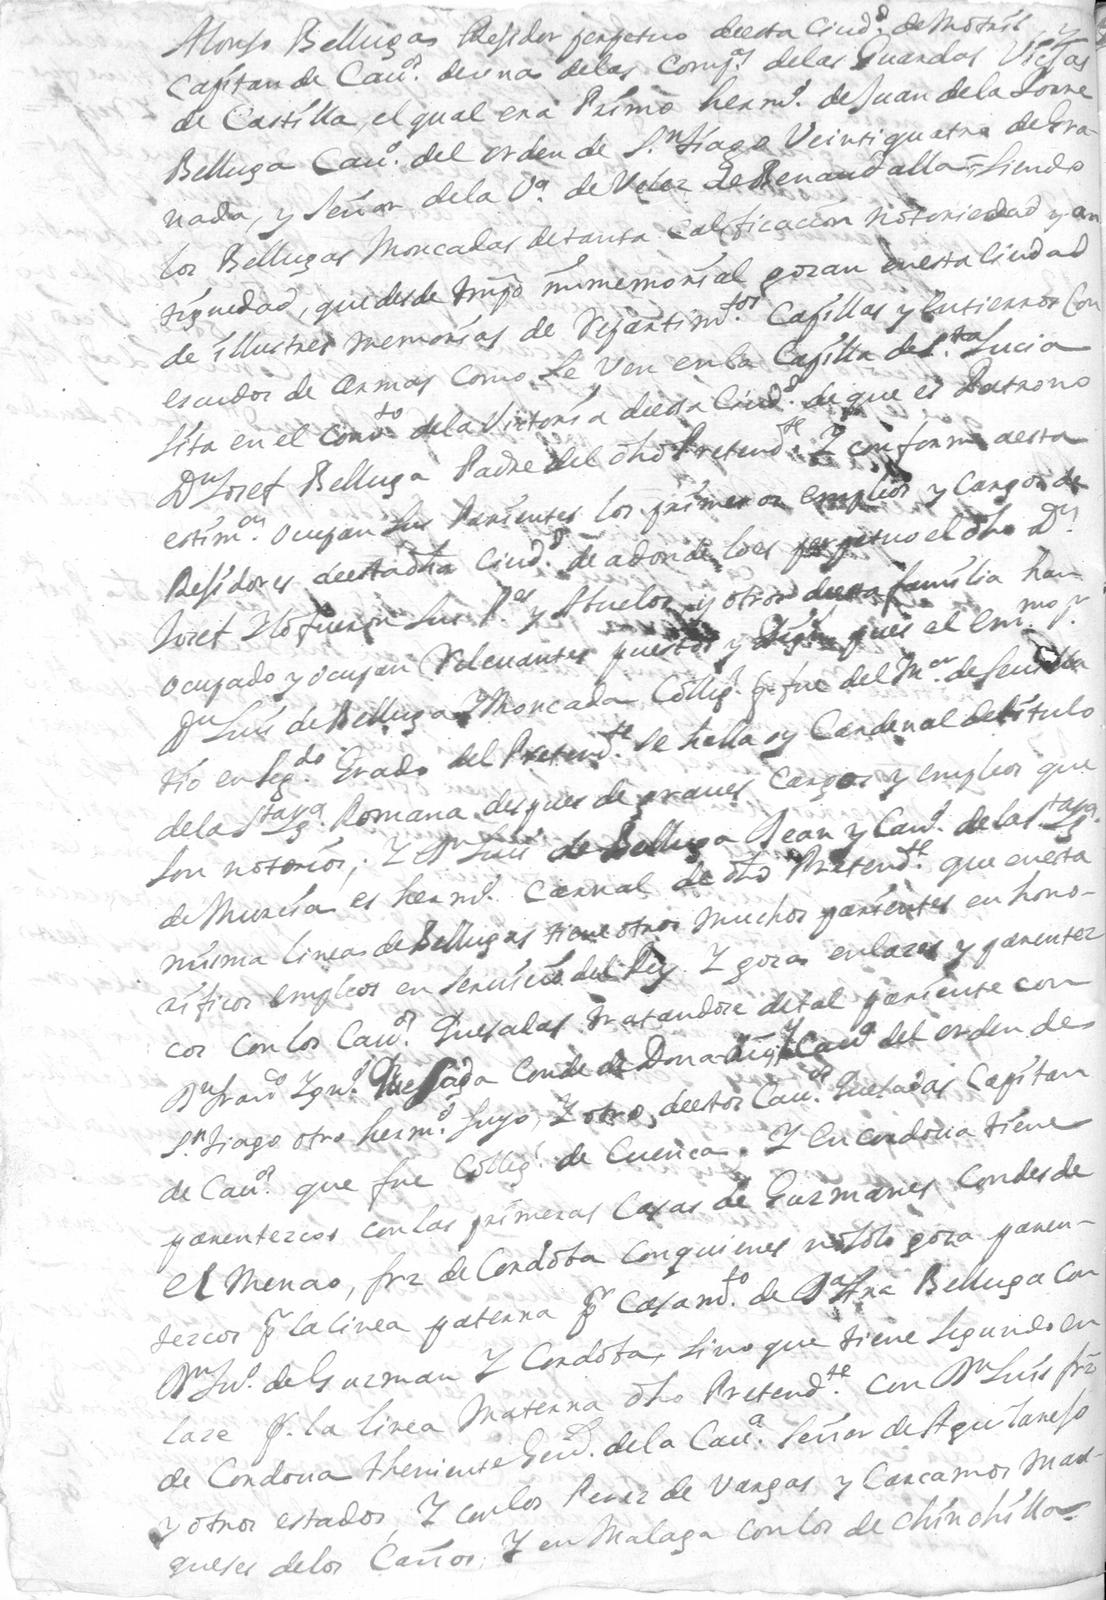 Alonso Bellugas Regidor perpetuo desta Ciud.d de Motril, y
Capitan de Cau.os de una de las Comp.s de las Guardas Viejas
de Castilla, el qual era Primo herm.o de Juan de la Torre
Belluga Cau.o del orden de S.n tiago Veintiquatro de Gra-
nada, y Señor de la V.a de Velez de Benaudalla = siendo
los Bellugas Moncadas de tanta calificacion notoriedad y an
tiguedad, que desde tmpo immemorial gozan en esta Ciudad
de illustres memorias de Repartim.tos Capillas y Entierros Con
escudos de Armas Como se Ven en la Capilla de S.ta Lucia
sita en el Conv.to de la Victoria desta Ciud.d de que es Patrono
D.n Josef Belluga Padre del dho Pretend.te Y conforme a esta
estim.on ocupan sus Parientes los primeros empleos y Cargos de
Regidores desta dha Ciud.d de adonde lo es perpetuo el dho D.n
Josef Y lo fueron sus P.es y Abuelos y otros desta familia han
ocupado y ocupan Relevantes puestos y pues el Em.mo S.r
D.n Luis de Belluga Y Moncada Colleg.l q. fue del M.or de Sevilla
tio en seg.do Grado del Pretend.te se halla oy Cardenal del titulo
de la S.ta Yg.a Romana despues de graves Cargos y empleos que
son notorios; Y D.n Luis de Belluga Dean y Can.o de la S.ta Yg.a
de Murcia es herm.o Carnal de dho Pretend.te que en esta
misma linea de Bellugas tiene otros muchos parientes en hono-
rificos empleos en servicio del Rey. Y goza enlazes y parentez
cos con los Cau.os Quesadas tratandose de tal pariente con
D.n Fran.co Ygn.o Quesada Conde de Donadio, Y Cau.o del orden de
S.n tiago otro herm.o suyo, Y otro, destos Cau.os Quesadas Capitan
de Cau.os que fue Colleg.l de Cuenca. Y En Cordova tiene
parentezcos con las primeras Casas de Guzmanes Condes de
el Menao, frz de Cordoba con quienes no solo goza paren-
tezcos p.r la linea paterna p.r Casam.to de D.a Ana Belluga con
D.n Ju.o de Guzman Y Cordoba, sino que tiene segundo en
laze p.r la linea Materna dho Pretend.te con D.n Luis frz
de Cordova theniente Gen.l de la Cau.a Señor de Aguilarejo
y otros estados, Y con los Perez de Vargas y Carcamos Mar-
queses de los Caños, Y en Malaga con los de Chinchilla